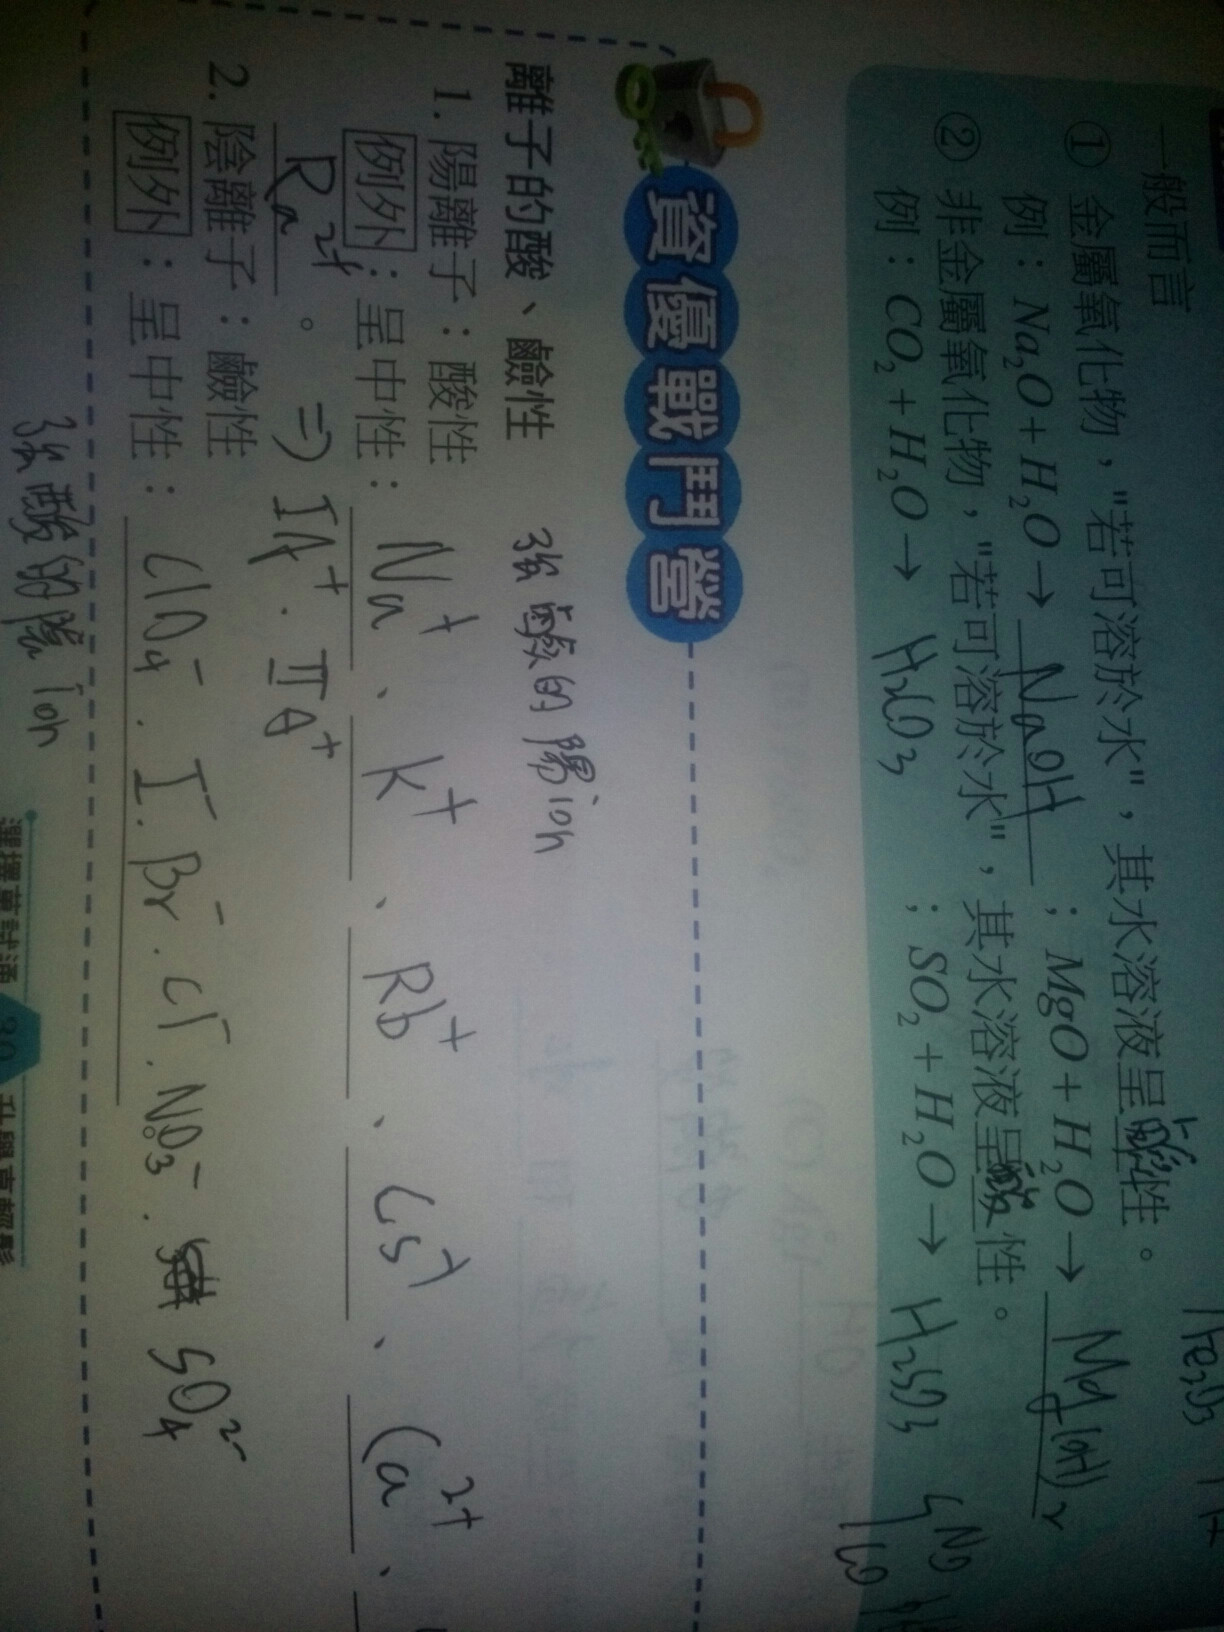 一般而言
① 金屬氧化物，"若可溶於水"，其水溶液呈鹼性。
例：Na₂O + H₂O → NaOH ；MgO + H₂O → Mg(OH)₂
② 非金屬氧化物，"若可溶於水"，其水溶液呈酸性。
例：CO₂ + H₂O → H₂CO₃ ；SO₂ + H₂O → H₂SO₃
NO
CO
資優戰鬥營
離子的酸、鹼性 強鹼的陽ion
1. 陽離子：酸性
例外：呈中性：Na⁺、K⁺、Rb⁺、Cs⁺、Ca²⁺、
Ra²⁺。⇒ IA⁺．IIA⁺
2. 陰離子：鹼性
例外：呈中性：ClO₄⁻．I⁻．Br⁻．Cl⁻．NO₃⁻．SO₄²⁻
強酸的陰ion
30